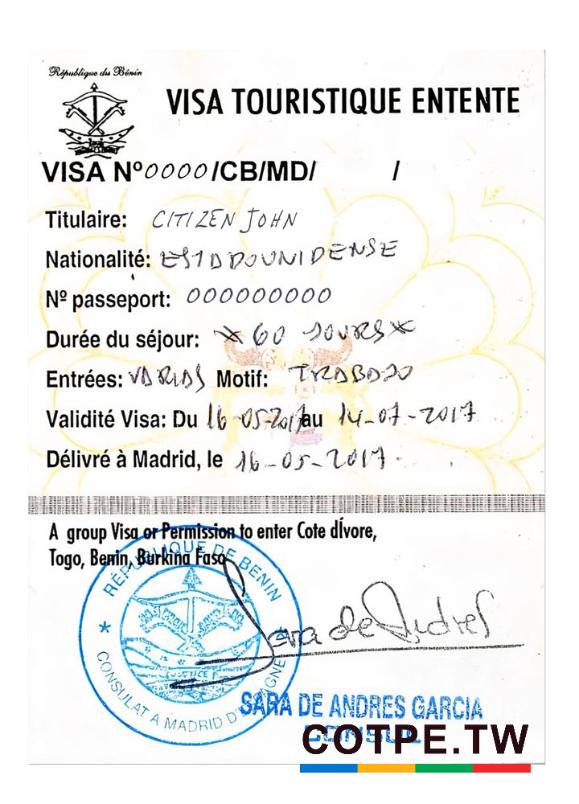 République du Bénin
VISA TOURISTIQUE ENTENTE
VISA Nº 0000/CB/MD/ /
Titulaire: CITIZEN JOHN
Nationalité: ESTADOUNIDENSE
Nº passeport: 000000000
Durée du séjour: *60 JOURS*
Entrées: VARIAS Motif: TRABAJO
Validité Visa: Du 16-05-2017 au 14-07-2017
Délivré à Madrid, le 16-05-2017-
A group Visa or Permission to enter Cote dÍvore,
Togo, Benin, Burkina Faso
RÉPUBLIQUE DE BENIN
JUSTICE
CONSULAT A MADRID D'ESPAGNE
Sara de Andres
SARA DE ANDRES GARCIA
CONSUL
COTPE.TW